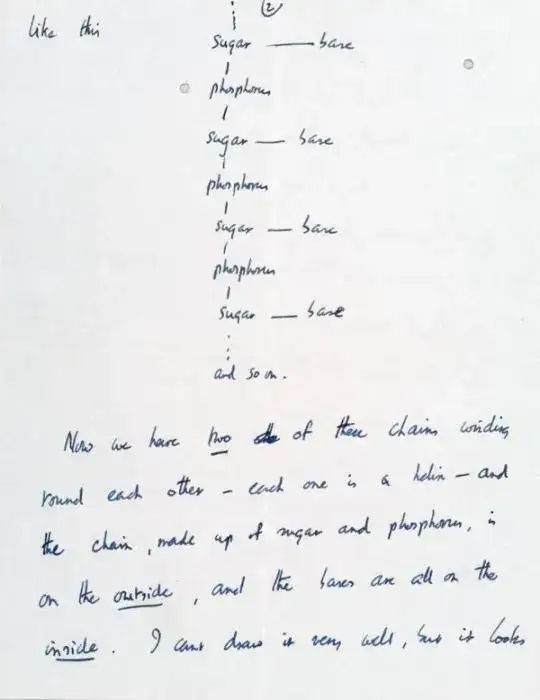 ②
like this
sugar — base
phosphorus
sugar — base
phosphorus
sugar — base
phosphorus
sugar — base
and so on.
Now we have two of these chains winding
round each other – each one is a helix – and
the chain, made up of sugar and phosphorus, is
on the outside, and the bases are all on the
inside. I can't draw it very well, but it looks